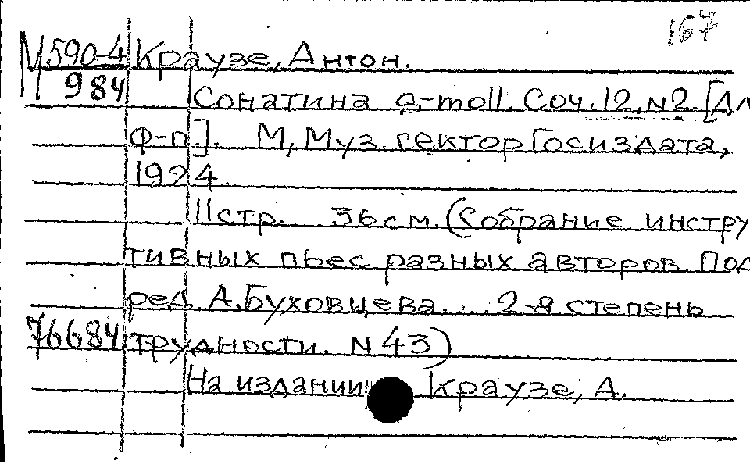 167
М 590-4 Краузе, Антон.
984 Сонатина a-moll. Соч. 12, N2. [Дл
ф-п.]. М, Муз. сектор Госиздата,
1924
11 стр. 36 см. (Собрание инстру
тивных пьес разных авторов Под
ред. А. Буховцева... 2-я степень
76684 трудности. N 43)
На издании: Краузе, А.